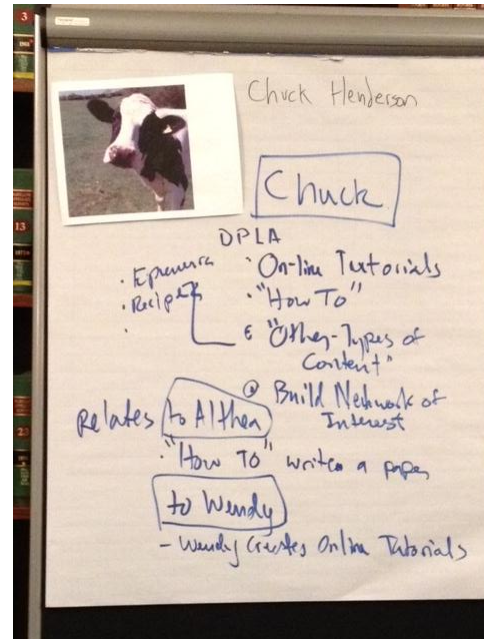 Chuck Henderson
Chuck
DPLA
· Ephemera
· Recipes
· On-line Tutorials
· "How To"
& "Other-Types of
Content"
@ Build Network of
Interest
Relates to Althea
· "How TO" write a paper
to Wendy
- Wendy Creates Online Tutorials
3
13
23